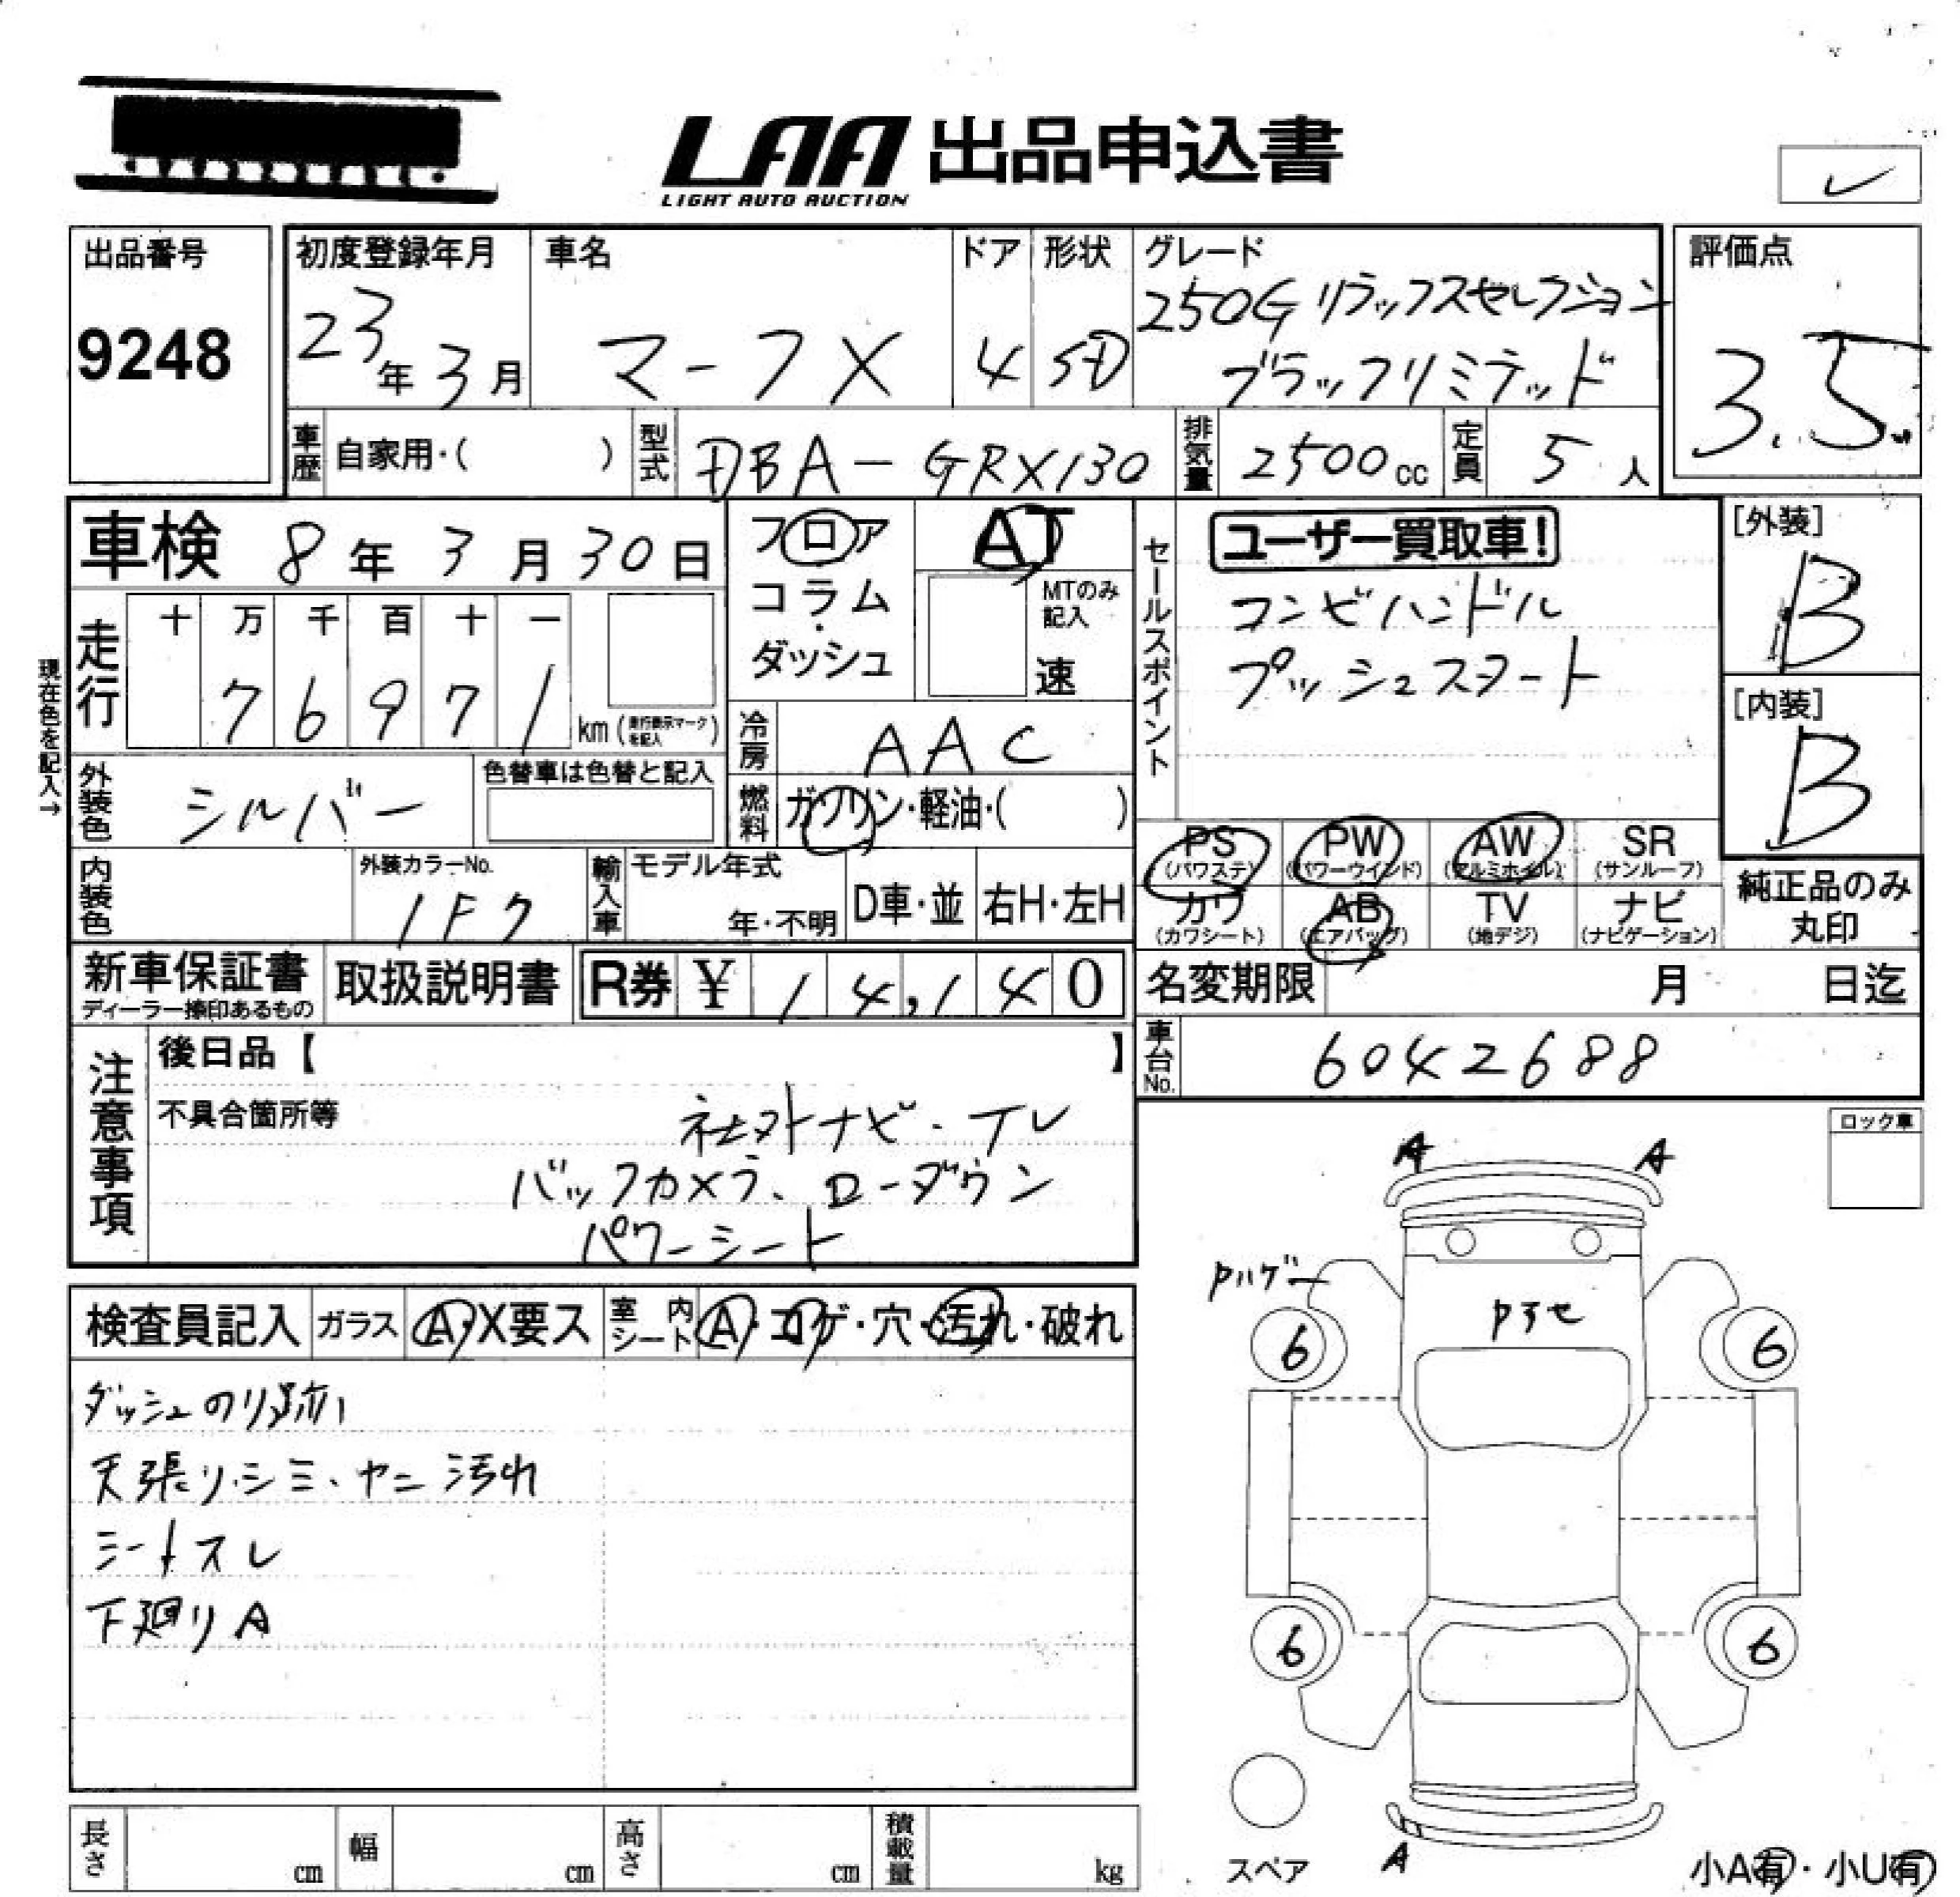 LAA 出品申込書
LIGHT AUTO AUCTION
出品番号
9248
初度登録年月
23年 3月
車名
マークX
ドア
4
形状
SD
グレード
250G リラックスセレクション
ブラックリミテッド
評価点
3.5
車歴 自家用・( )
型式 DBA-GRX130
排気量 2500cc
定員 5人
車検 8年 3月 30日
現在色を記入→
走行
十 万 千 百 十 一
7 6 9 7 1 km (走行表示マークを記入)
フロア
コラム
・
ダッシュ
AT
MTのみ
記入
速
セールスポイント
ユーザー買取車!
コンビハンドル
プッシュスタート
[外装]
B
[内装]
B
外装色 シルバー
色替車は色替と記入
冷房 AAC
燃料 ガソリン・軽油・( )
内装色
外装カラーNo.
1F7
輸入車
モデル年式
年・不明
D車・並
右H・左H
PS (パワステ)
PW (パワーウインド)
AW (アルミホイル)
SR (サンルーフ)
カワ (カワシート)
AB (エアバッグ)
TV (地デジ)
ナビ (ナビゲーション)
純正品のみ
丸印
新車保証書
ディーラー捺印あるもの
取扱説明書
R券 ¥ 14,140
名変期限 月 日迄
車台No. 6042688
注意事項
後日品【 】
不具合箇所等
社外ナビ・TV
バックカメラ、ローダウン
パワーシート
ロック車
A A
Pハゲ
Pヤセ
6 6
6 6
A
検査員記入
ガラス A・X要ス
室内シート A・コゲ・穴・汚れ・破れ
ダッシュのり跡
天張り・シミ、ヤニ汚れ
シートスレ
下廻りA
長さ cm
幅 cm
高さ cm
積載量 kg
スペア
小A有・小U有